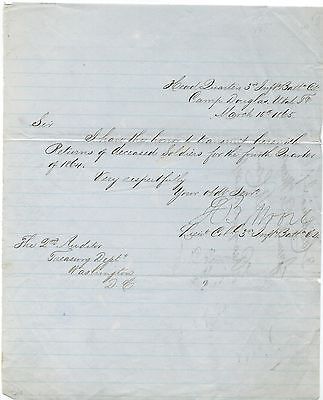 Head Quarters 3d Infty Batt. Cal
Camp Douglas, Utah Ty
March 15th 1865.
Sir
I have the honor to transmit herewith
Returns of deceased soldiers for the fourth Quarter
of 1864.
Very respectfully
Your obdt Servt
J. B. Moore
Lieut Col. 3d Infty Batt. Cal
The 2nd Auditor
Treasury Dept
Washington
D. C